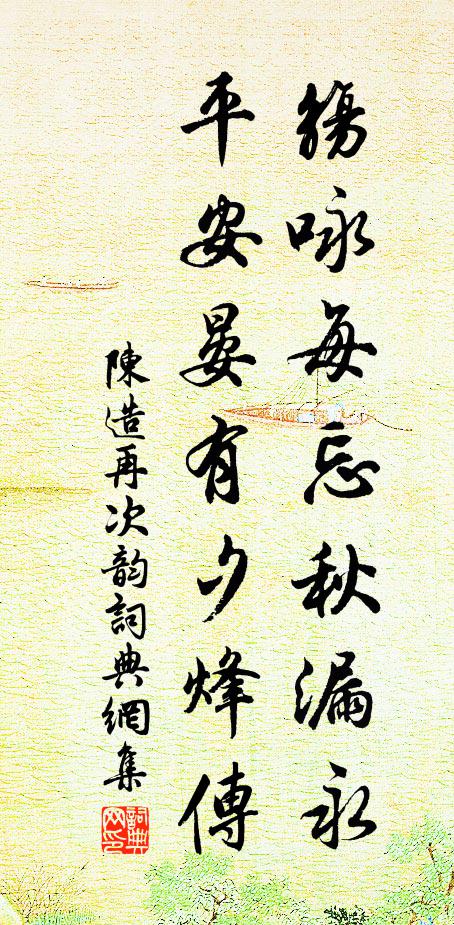 觴咏每忘秋漏永
平安晏有夕烽傳
陳造再次韵詞典網集
詞典網印